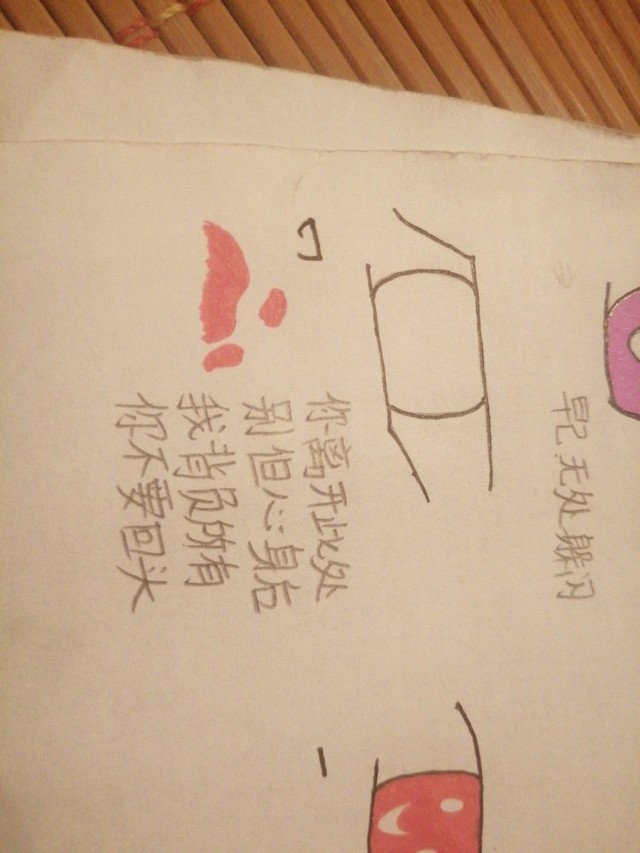 早已无处躲闪
你离开此处
别但心身后
我背负所有
你不要回头